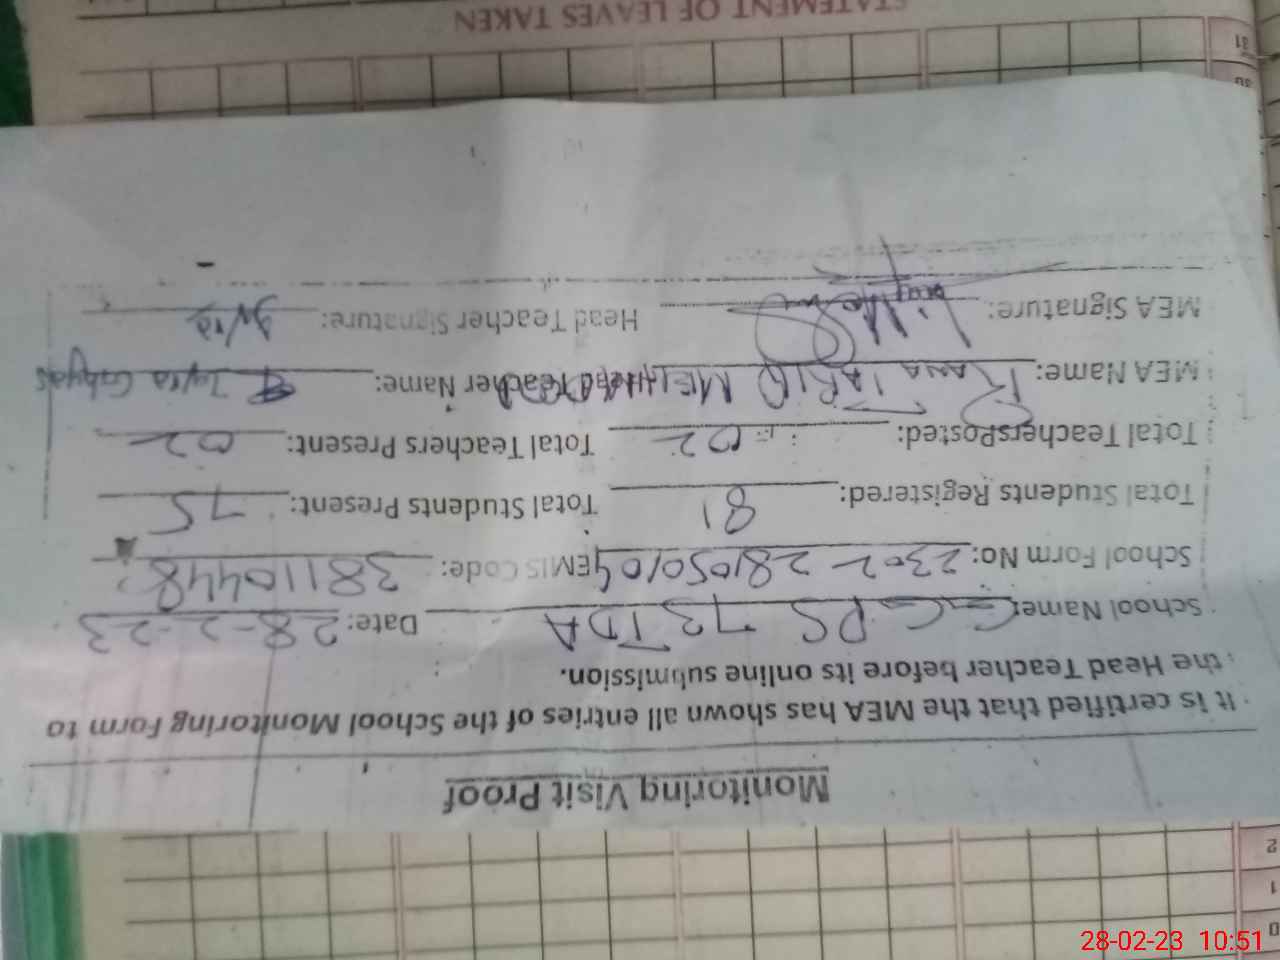 Monitoring Visit Proof
It is certified that the MEA has shown all entries of the School Monitoring Form to
the Head Teacher before its online submission.
School Name: GGPS 73 TDA Date: 28-2-23
School Form No: 2302281050104 EMIS Code: 38110448
Total Students Registered: 81 Total Students Present: 75
Total Teachers Posted: 02 Total Teachers Present: 02
MEA Name: RANA TARIQ Head Teacher Name:
MEA Signature: Head Teacher Signature:
STATEMENT OF LEAVES TAKEN
31
30
2
1
0
28-02-23 10:51